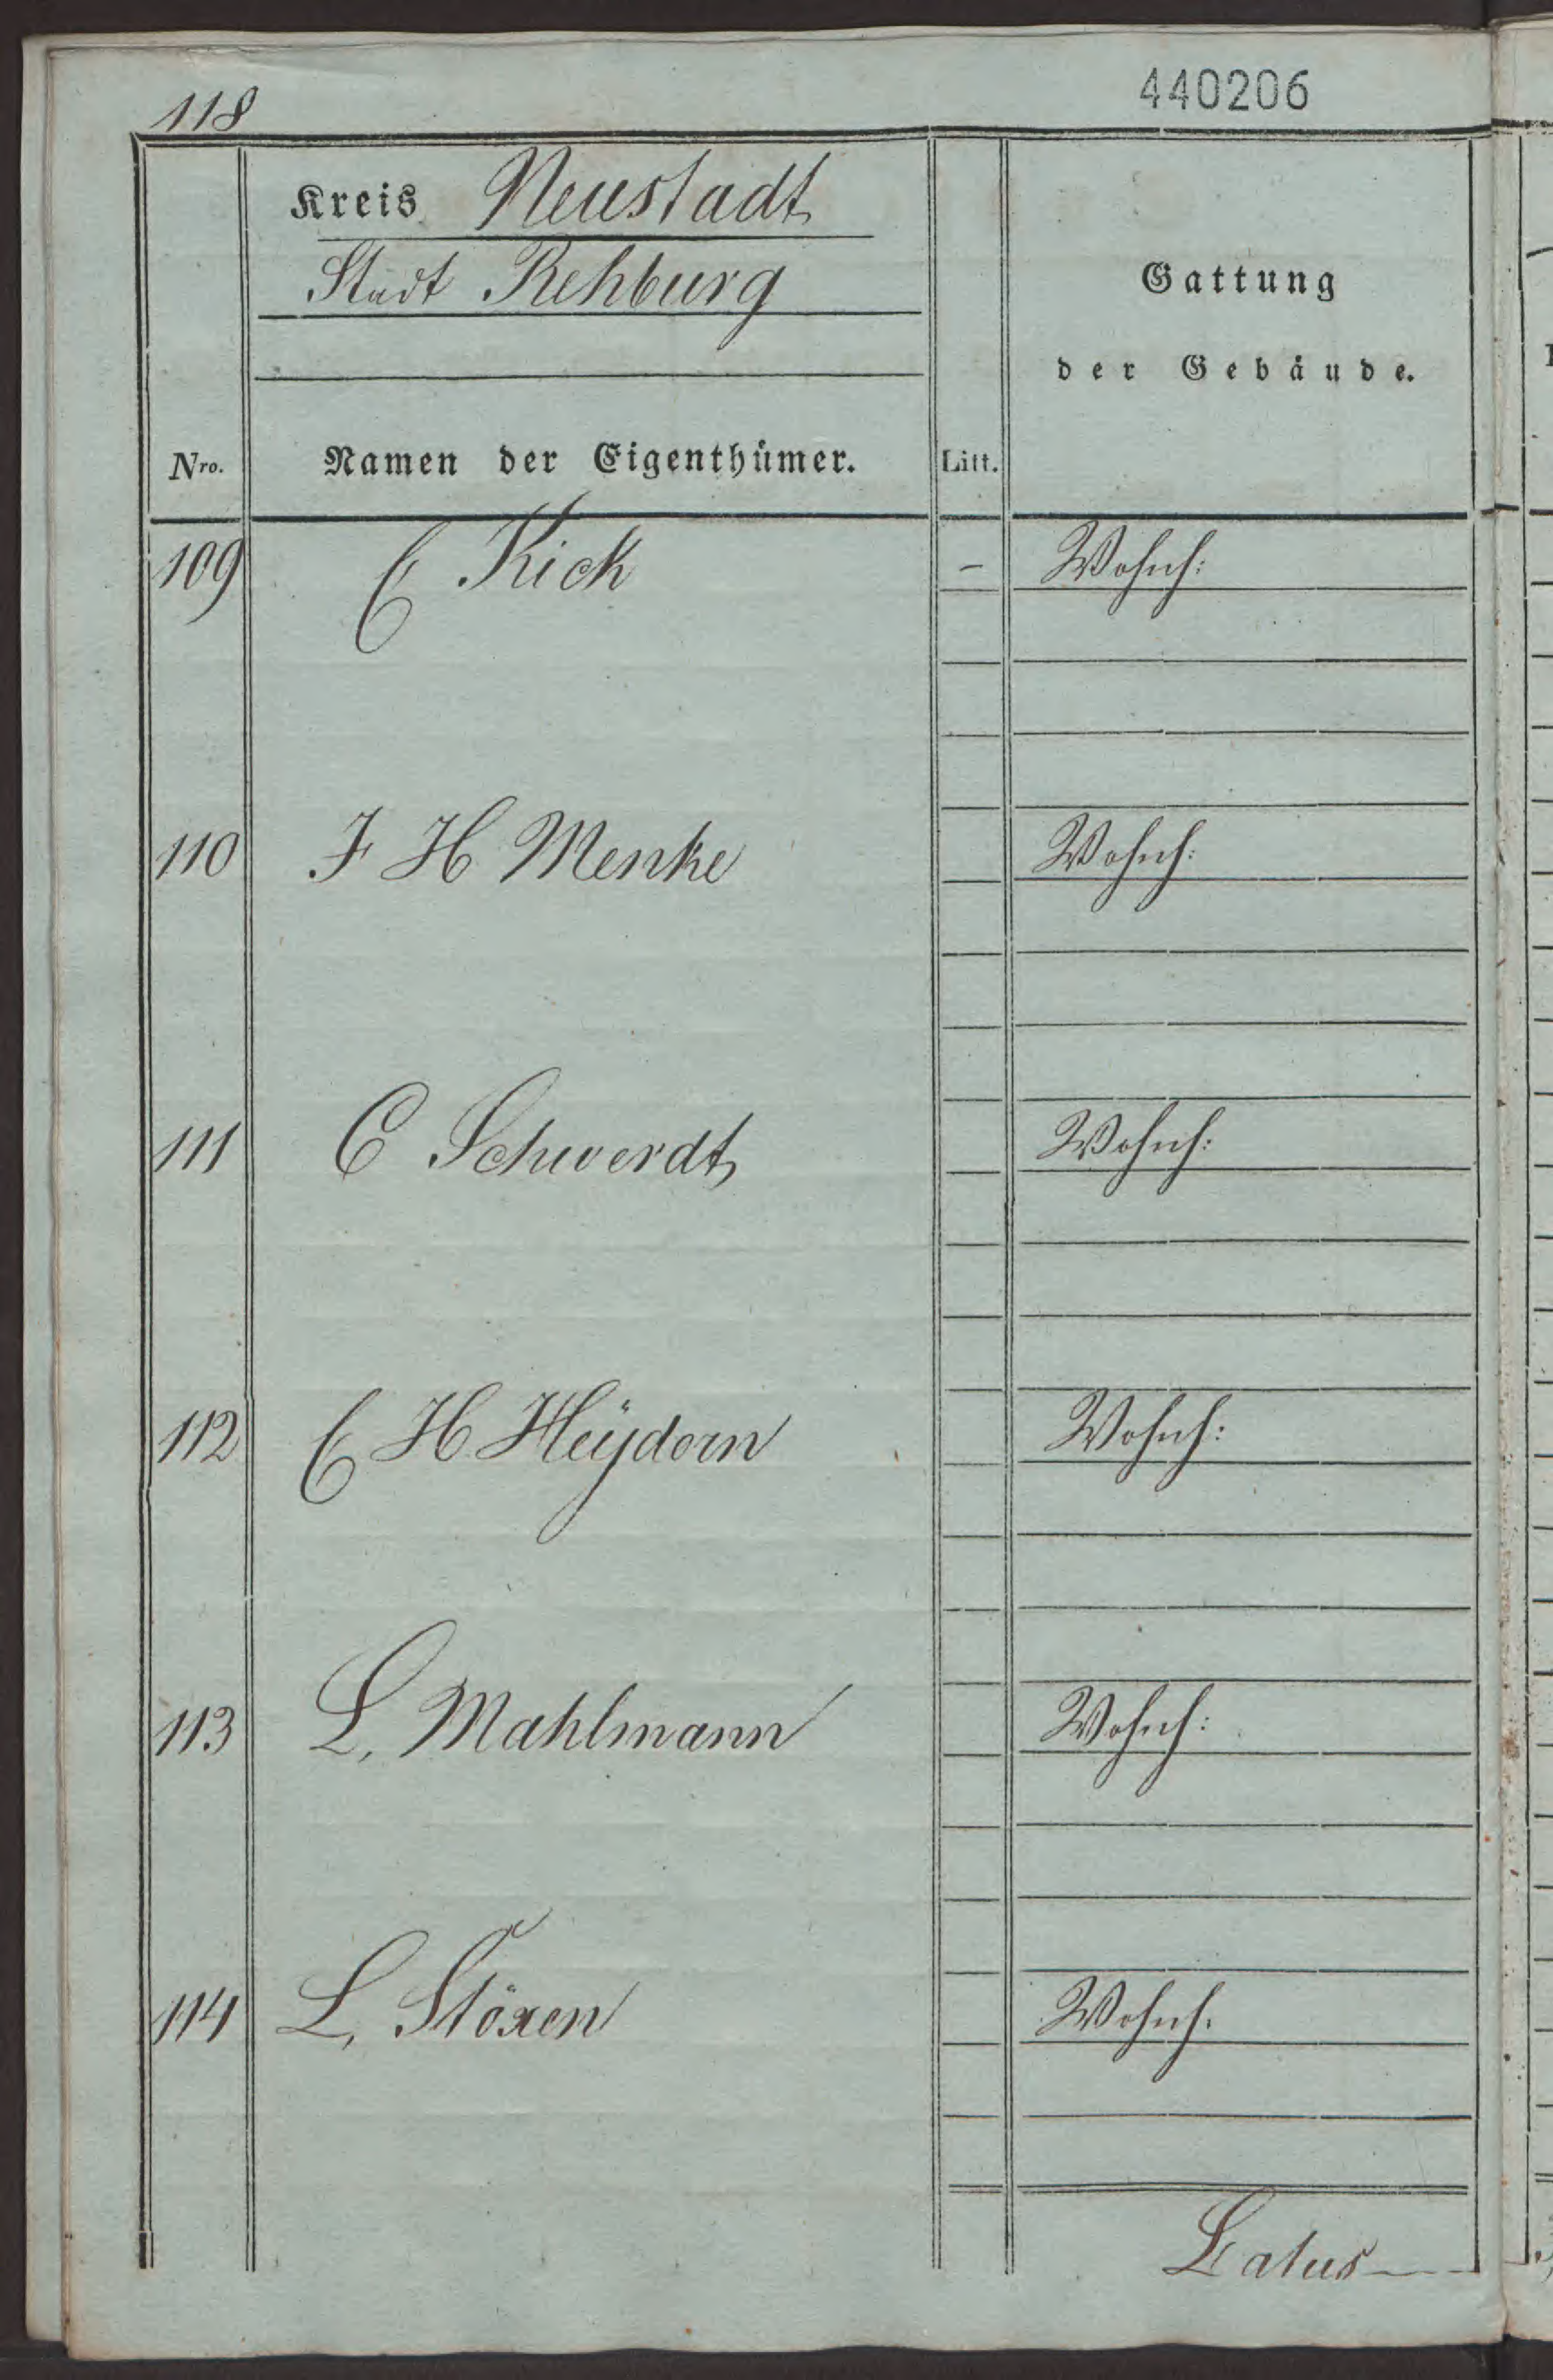 118
440206
Kreis Neustadt
Stadt Rehburg
Gattung
der Gebäude.
Nro. Namen der Eigenthümer. Litt.
109 C Kick - Wohnh:
110 F H Menke Wohnh:
111 C Schwerdt Wohnh:
112 C H Heÿdorn Wohnh:
113 L. Mahlmann Wohnh:
114 L. Stöxen Wohnh.
Latus